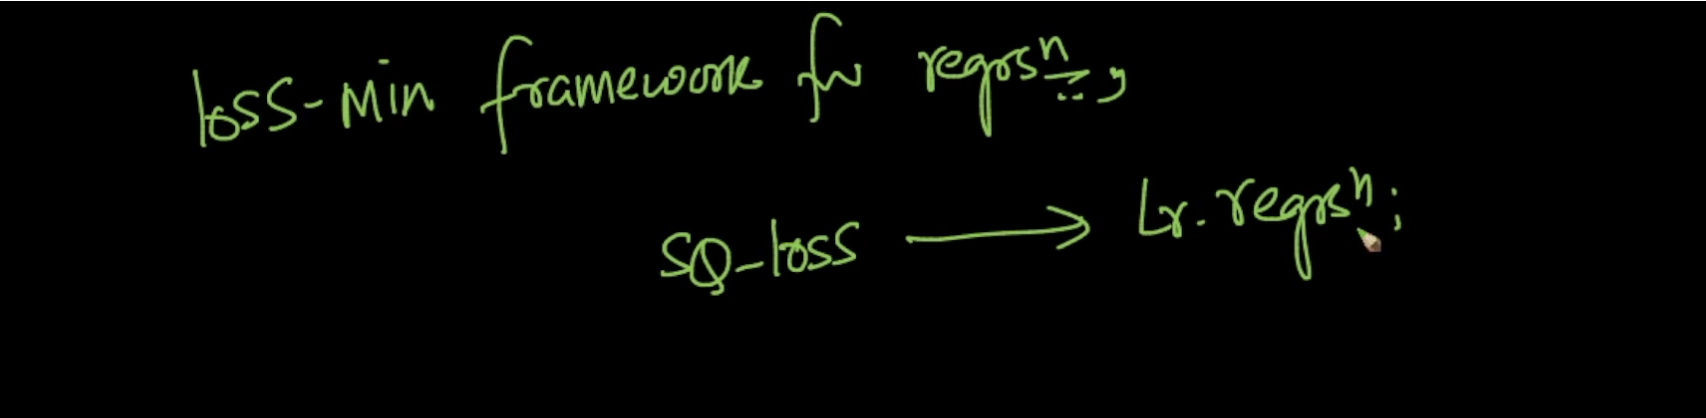 loss-Min framework for regrsn,
SQ-loss → Lr. regrsn;